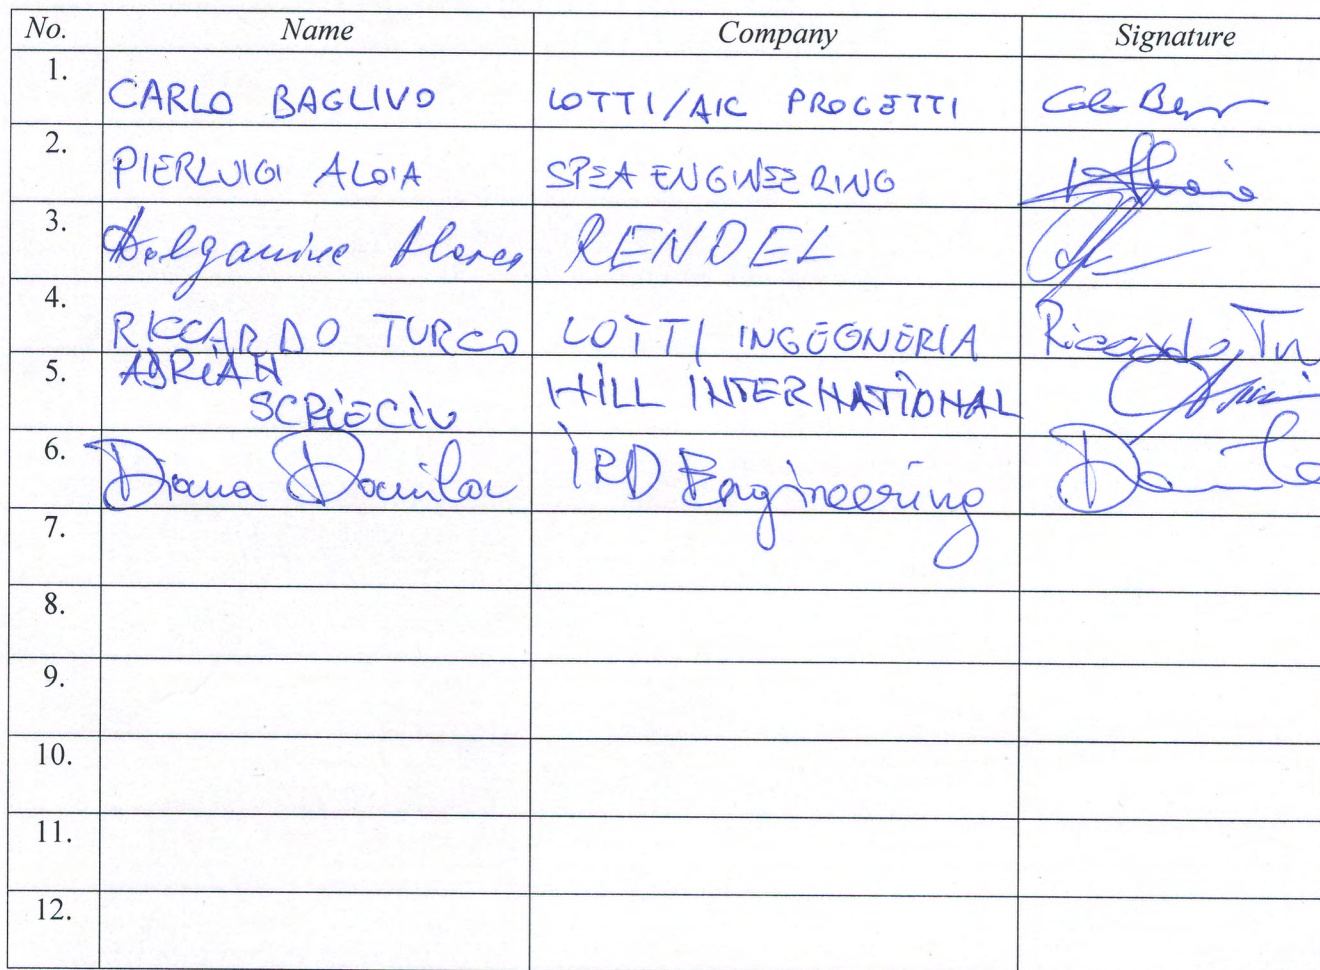 No. Name Company Signature
1. CARLO BAGLIVO LOTTI/AIC PROGETTI
2. PIERLUIGI ALOIA SPEA ENGINEERING
3. RENDEL
4. RICCARDO TURCO LOTTI INGEGNERIA Riccardo
5. ADRIAN
SCRIECIU HILL INTERNATIONAL
6. Diana Danilov IRD Engineering
7.
8.
9.
10.
11.
12.